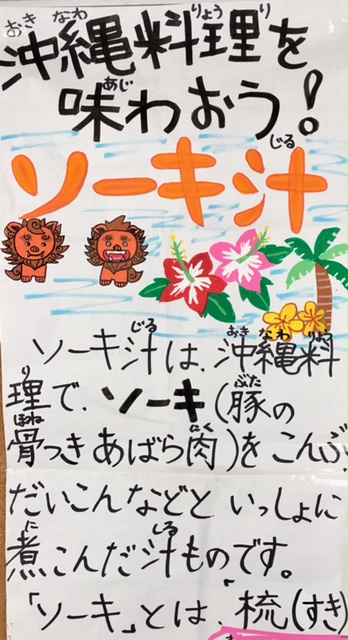 沖縄料理を
味わおう!
ソーキ汁
ソーキ汁は、沖縄料
理で、ソーキ(豚の
骨つきあばら肉)をこんぶ
だいこんなどといっしょに
煮こんだ汁ものです。
「ソーキ」とは、「梳(すき)